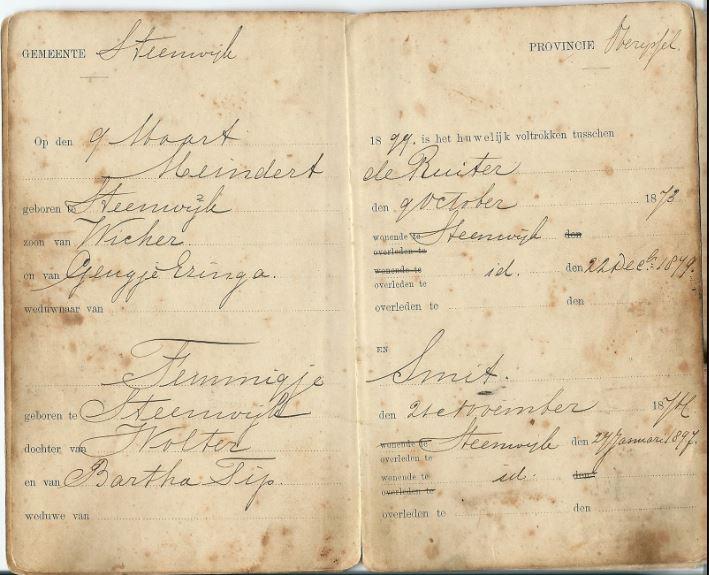 GEMEENTE Steenwijk
Op den 9 Maart
Meindert
geboren te Steenwijk
zoon van Wicher
en van Geugje Eringa.
weduwnaar van
Femmigje
geboren te Steenwijk
dochter van Wolter
en van Bartha Tip.
weduwe van
PROVINCIE Overijssel.
18 99. is het huwelijk voltrokken tusschen
de Ruiter
den 9 October 1873
wonende te Steenwijk den
overleden te
wonende te id. den 22 Decb. 1879.
overleden te
overleden te den
EN
Smit.
den 21 November 1874
wonende te Steenwijk den 27 Januari 1897.
overleden te
wonende te id. den
overleden te
overleden te den